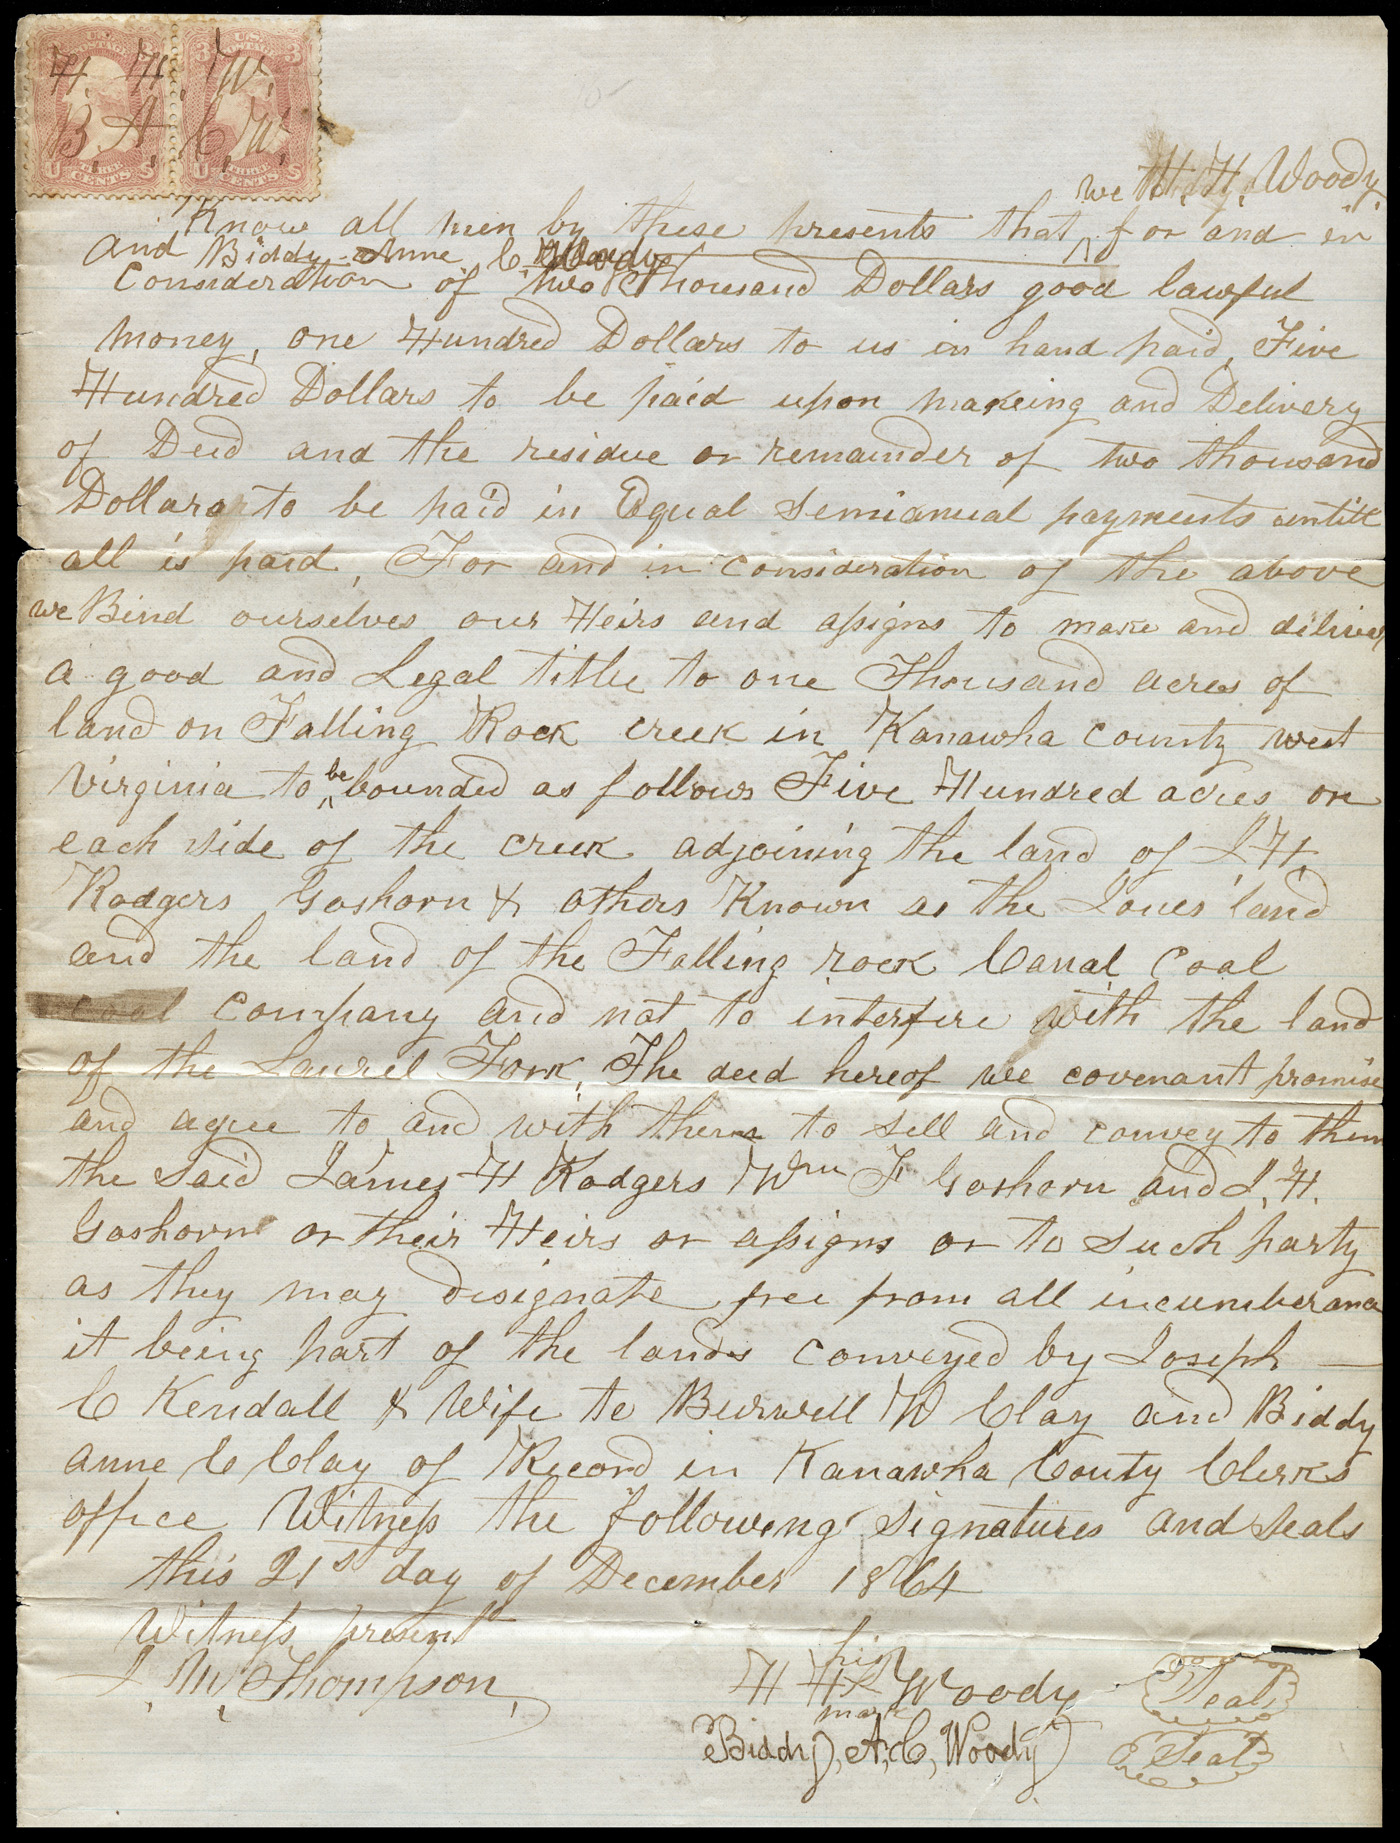 U.S. POSTAGE 3 U.S. POSTAGE 3
H. H. W.
B. A. C. W.
U THREE CENTS S U THREE CENTS S
we H. H. Woody
Know all men by these presents that ^ for and in
and Biddy Anne C Woody
Consideration of two Thousand Dollars good lawful
money, one Hundred Dollars to us in hand paid, Five
Hundred Dollars to be paid upon makeing and Delivery
of Deed and the residue or remainder of two thousand
Dollars to be paid in Equal Semianual payments untill
all is paid, For and in consideration of the above
we Bind ourselves our Heirs and assigns to make and deliver
a good and Legal title to one Thousand acres of
land on Falling Rock creek in Kanawha County west
Virginia to ^be bounded as follows Five Hundred acres on
each side of the creek adjoining the land of J. H.
Rodgers Goshorn & others Known as the Jones land
and the land of the Falling rock Canal Coal
coal company and not to interfere with the land
of the Laurel Fork, The deed hereof we covenant promise
and agree to and with them to sell and convey to them
the Said James H Rodgers Wm F Goshorn and J. H.
Goshorn or their Heirs or assigns or to such party
as they may designate free from all incumberance
it being part of the lands conveyed by Joseph
C Kendall & Wife to Burwell W Clay and Biddy
anne C Clay of Record in Kanawha Couty Clerks
office Witness the following signatures and seals
this 21st day of December 1864
Witness present
J. W. Thompson
H H his X mark Woody Seal
Biddy, A, C, Woody Seal